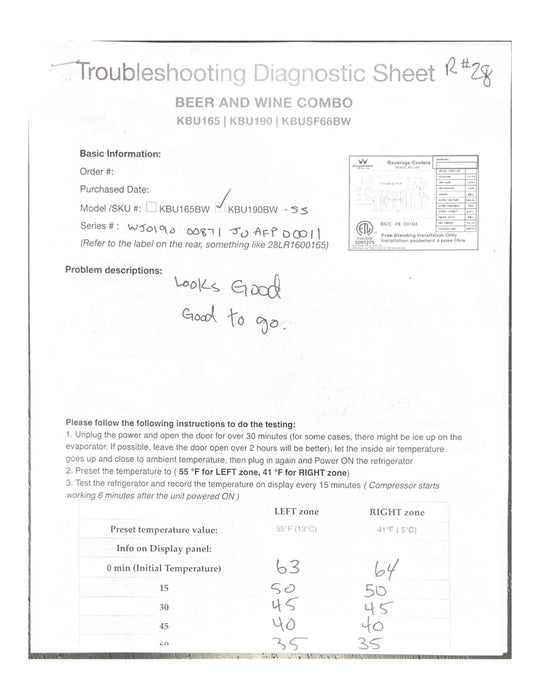 Troubleshooting Diagnostic Sheet R#28
BEER AND WINE COMBO
KBU165 | KBU190 | KBUSF66BW
Basic Information:
Order #:
Purchased Date:
Model /SKU #: ☐ KBU165BW ✓ KBU190BW - SS
Series # : WJ0190 00871 JUAFP D0011
(Refer to the label on the rear, something like 28LR1600165)
Beverage Coolers
MADE IN CHINA
Free-Standing Installation Only
Installation seulement a pose libre
Problem descriptions:
Looks Good
Good to go.
Please follow the following instructions to do the testing:
1. Unplug the power and open the door for over 30 minutes (for some cases, there might be ice up on the
evaporator. If possible, leave the door open over 2 hours will be better), let the inside air temperature
goes up and close to ambient temperature, then plug in again and Power ON the refrigerator
2. Preset the temperature to ( 55 °F for LEFT zone, 41 °F for RIGHT zone)
3. Test the refrigerator and record the temperature on display every 15 minutes ( Compressor starts
working 6 minutes after the unit powered ON )
LEFT zone RIGHT zone
Preset temperature value: 55°F (13°C) 41°F ( 5°C)
Info on Display panel:
0 min (Initial Temperature) 63 64
15 50 50
30 45 45
45 40 40
60 35 35